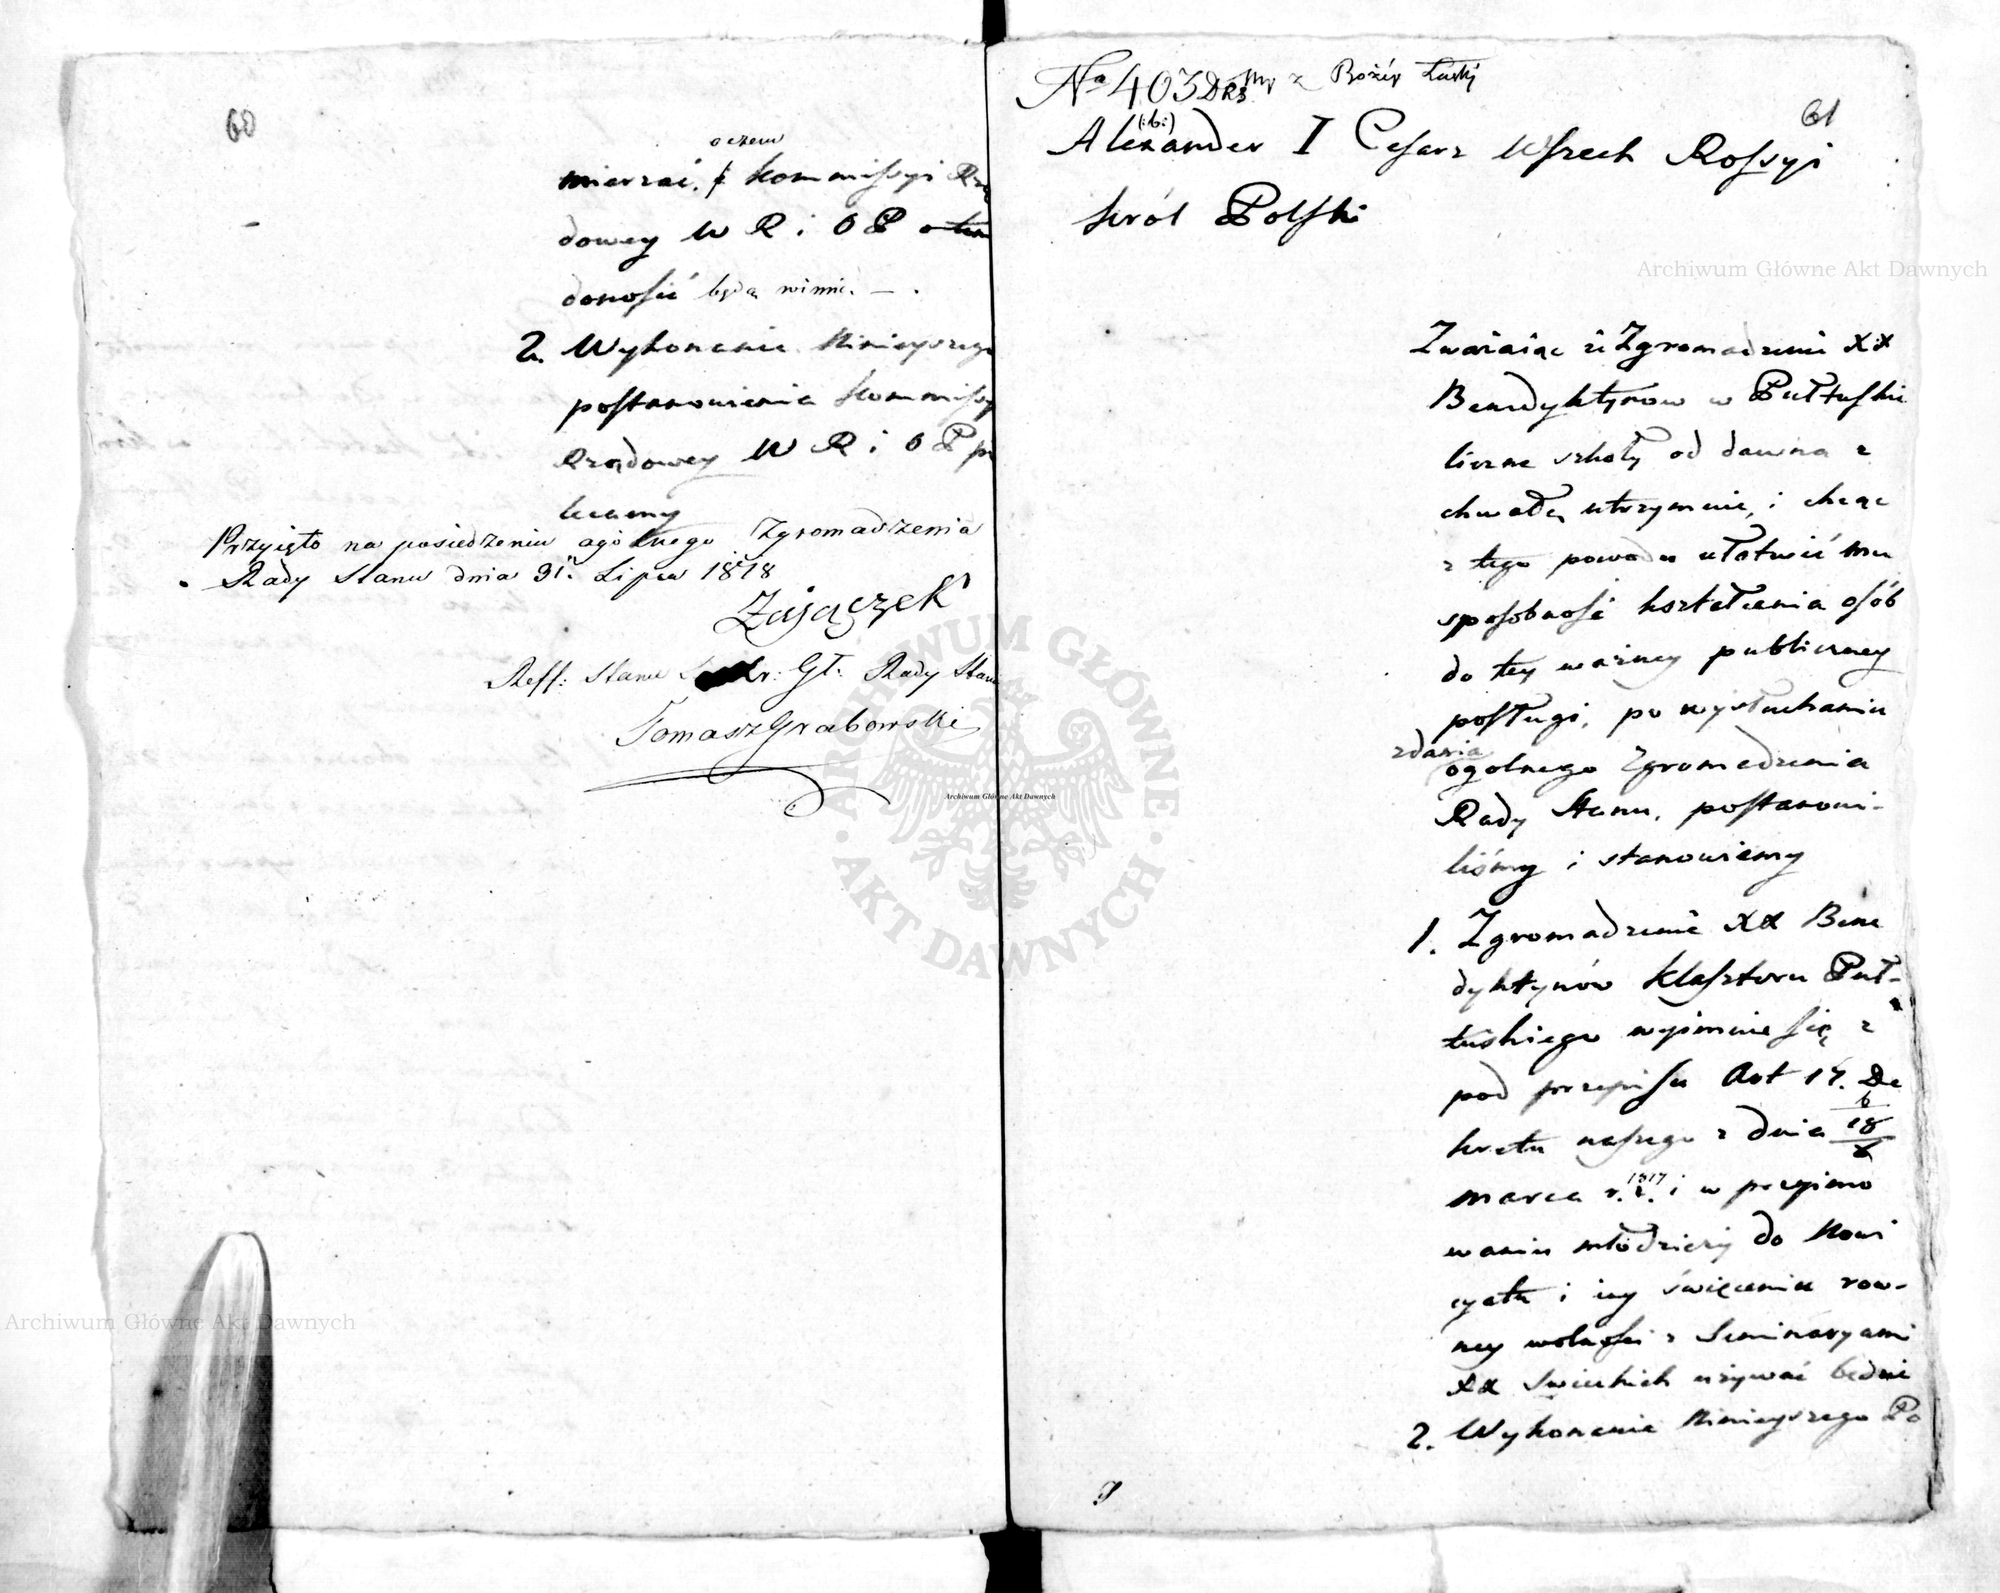 60
o czem
mierzać, Kommissyi Rzą
dowey W R i O P o tem
donosić będą winni. — .
2. Wykonanie Ninieyszego
postanowienia Kommissy
Rządowey W R i O P po
lecamy
Przyięto na posiedzeniu ogólnego Zgromadzenia
Rady Stanu dnia 31. Lipca 1818
Zajączek
Reff: Stanu Gł. Rady Stanu
Tomasz Grabowski
No 403 z Bożéy Łaski
61
(:b:)
Alexander I Cesarz Wszech Rossyi
Król Polski
Zważaiąc że Zgromadzenie XX
Benedyktynow w Pułtusku
liczne szkoły od dawna z
chwałą utrzymuie, i chcąc
z tego powodu ułatwić mu
sposobność kształcenia osób
do tey ważney publiczney
posługi, po wysłuchaniu
zdania
ogolnego Zgromadzenia
Rady Stanu, postanowi-
liśmy i stanowiemy
1. Zgromadzenie XX Bene
dyktynów Klasztoru Puł-
tuskiego wyimuie się z
pod przepisu Art 17. De
kretu naszego z dnia 6/18
marca r. 1817 i w przyimo
waniu młodzieży do Nowi
cyatu i iey święceniu row-
ney wolności z Seminaryami
XX Swieckich używać będzie
2. Wykonanie Ninieyszego Po
Archiwum Główne Akt Dawnych
Archiwum Główne Akt Dawnych
Archiwum Główne Akt Dawnych
ARCHIWUM GŁÓWNE
AKT DAWNYCH